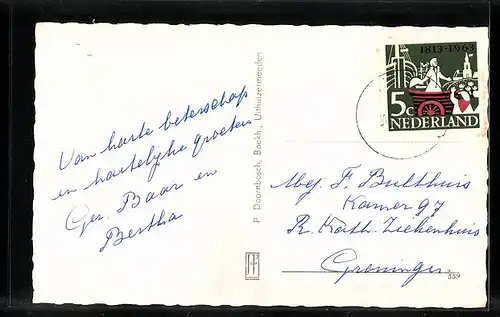 Van harte beterschap
en hartelijke groeten
Ger. Baar en
Bertha
P Doornbosch, Boekh., Uithuizermeeden
1813-1963
5c
NEDERLAND
Mej. F. Bulthuis
Kamer 97
R. Kath. Ziekenhuis
Groningen
339